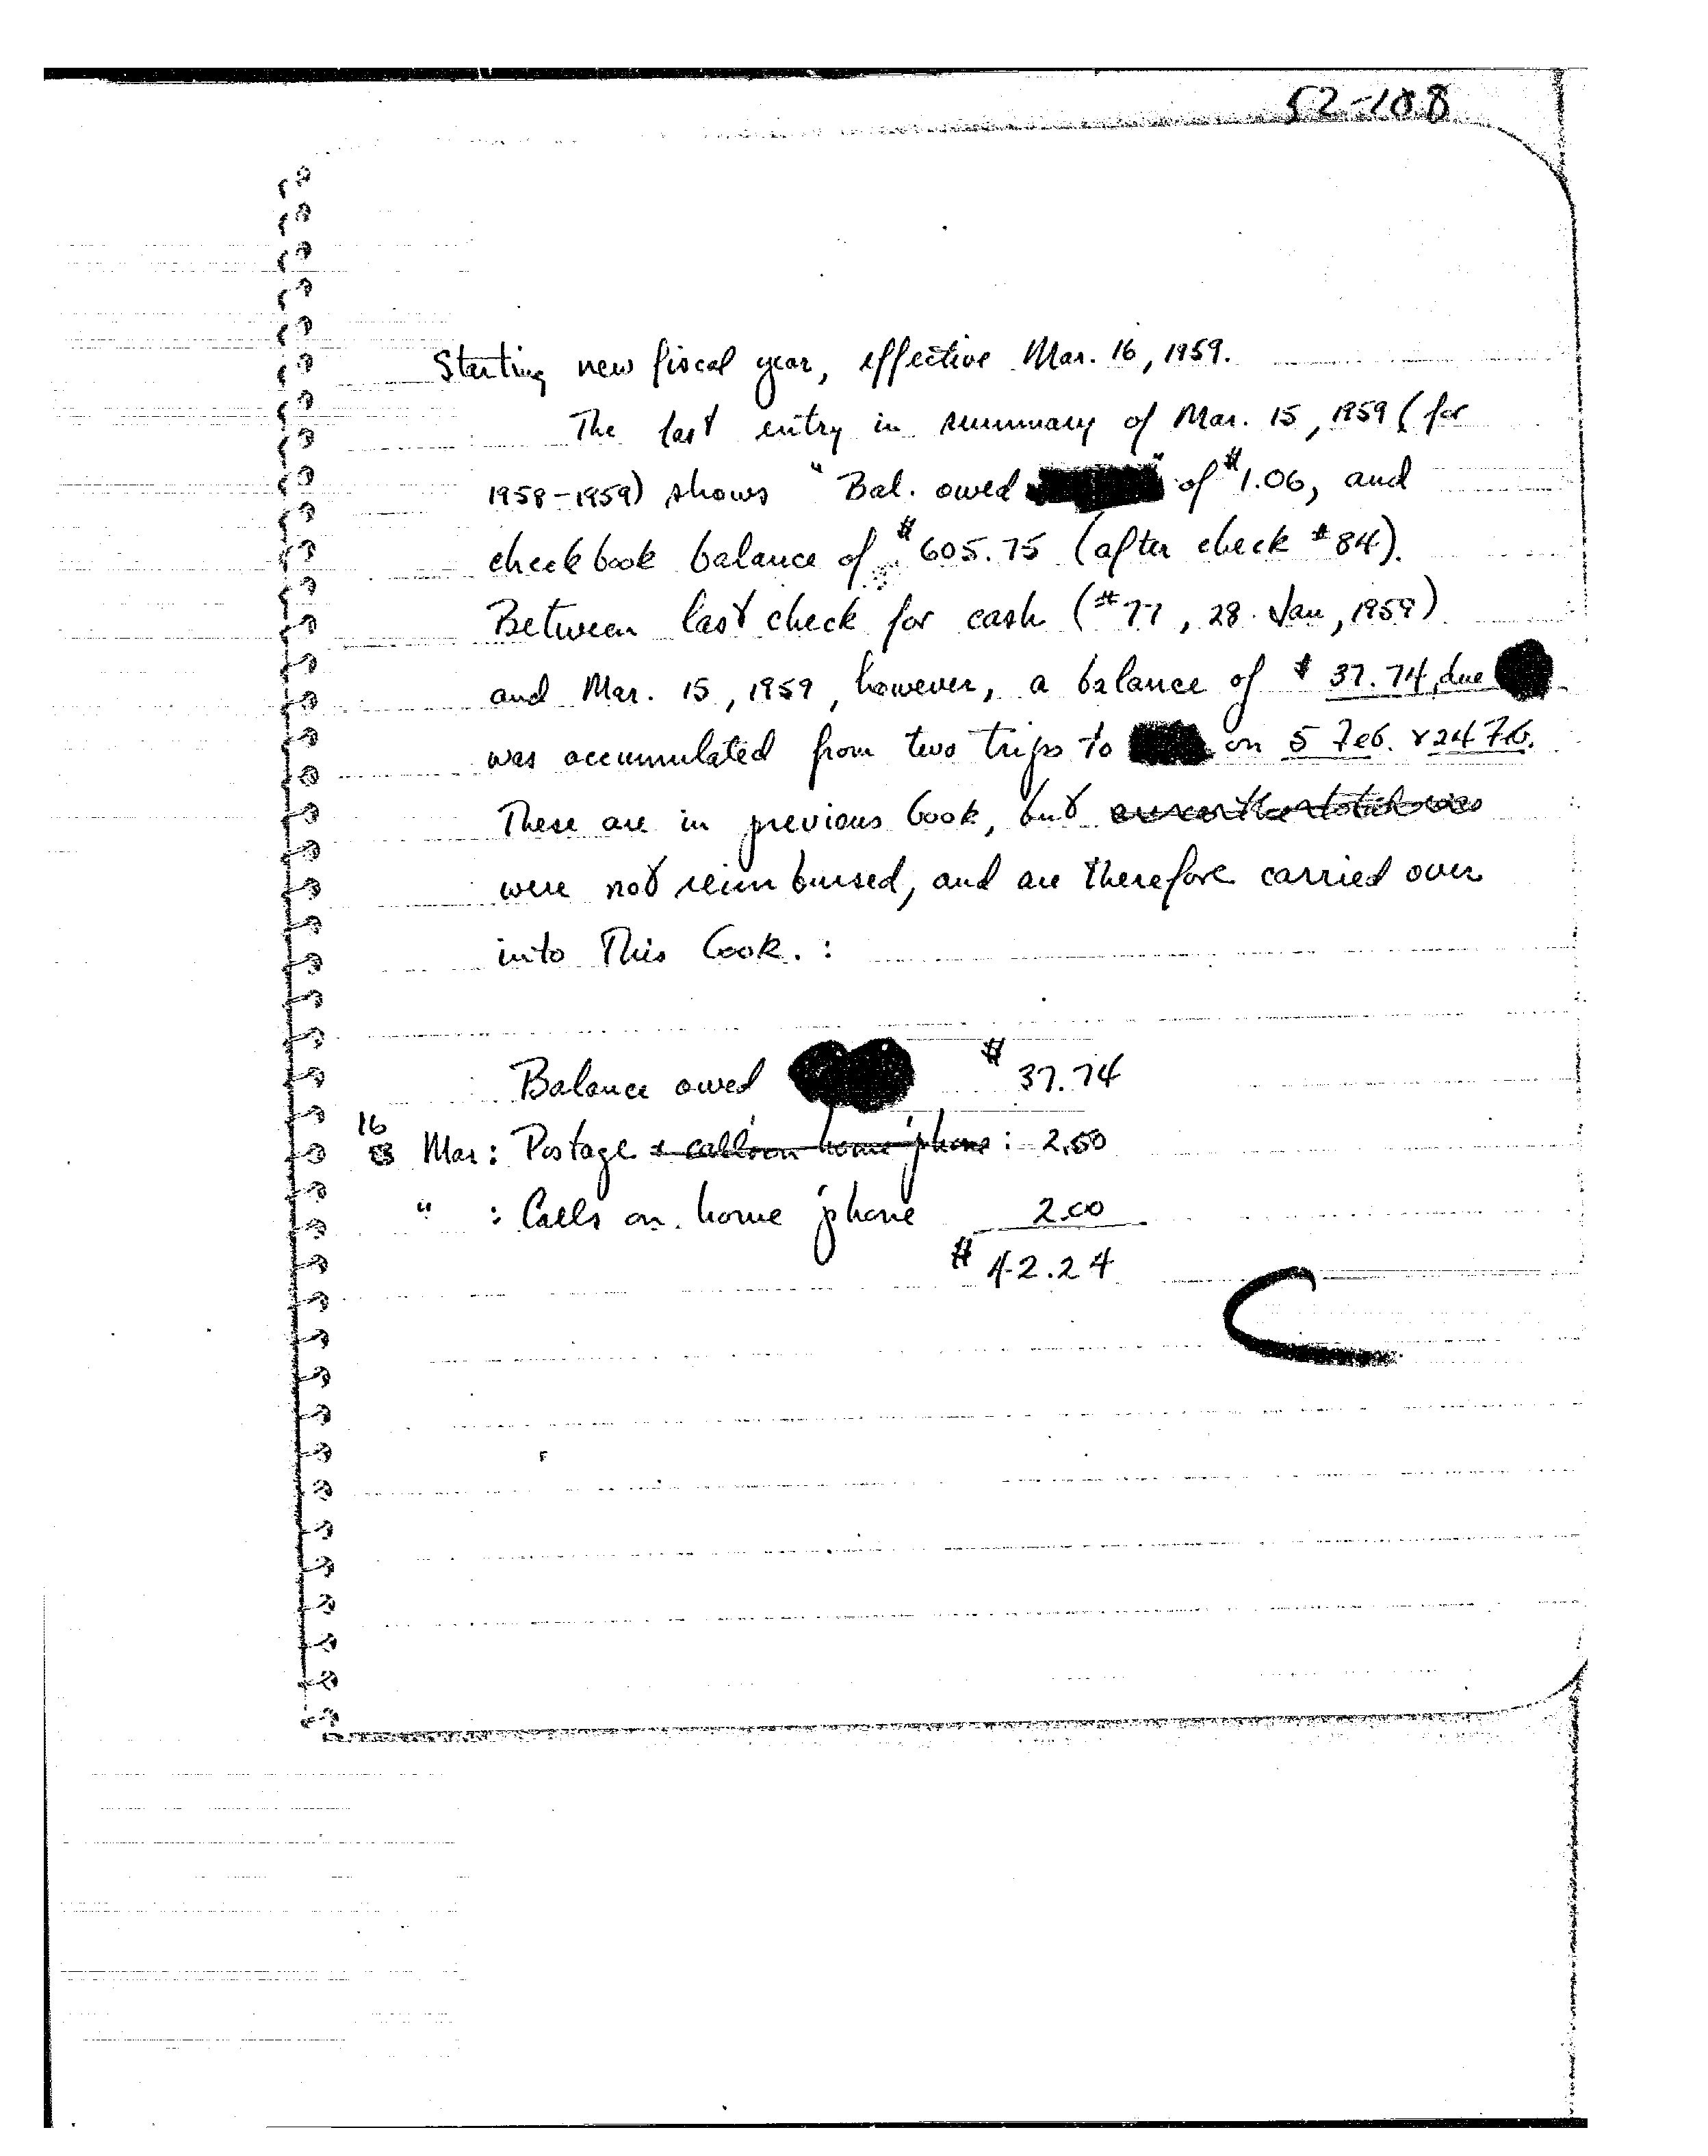 52-108
Starting new fiscal year, effective Mar. 16, 1959.
The last entry in summary of Mar. 15, 1959 (for
1958-1959) shows "Bal. owed " of $1.06, and
checkbook balance of $605.75 (after check #84).
Between last check for cash (#77, 28 Jan, 1959)
and Mar. 15, 1959, however, a balance of $37.74, due
was accumulated from two trips to on 5 Feb. & 24 Feb.
These are in previous book, but
were not reimbursed, and are therefore carried over
into this book. :
Balance owed $ 37.74
16 Mar: Postage & calls on home 'phone : 2.50
" : Calls on home 'phone 2.00
$ 42.24
C